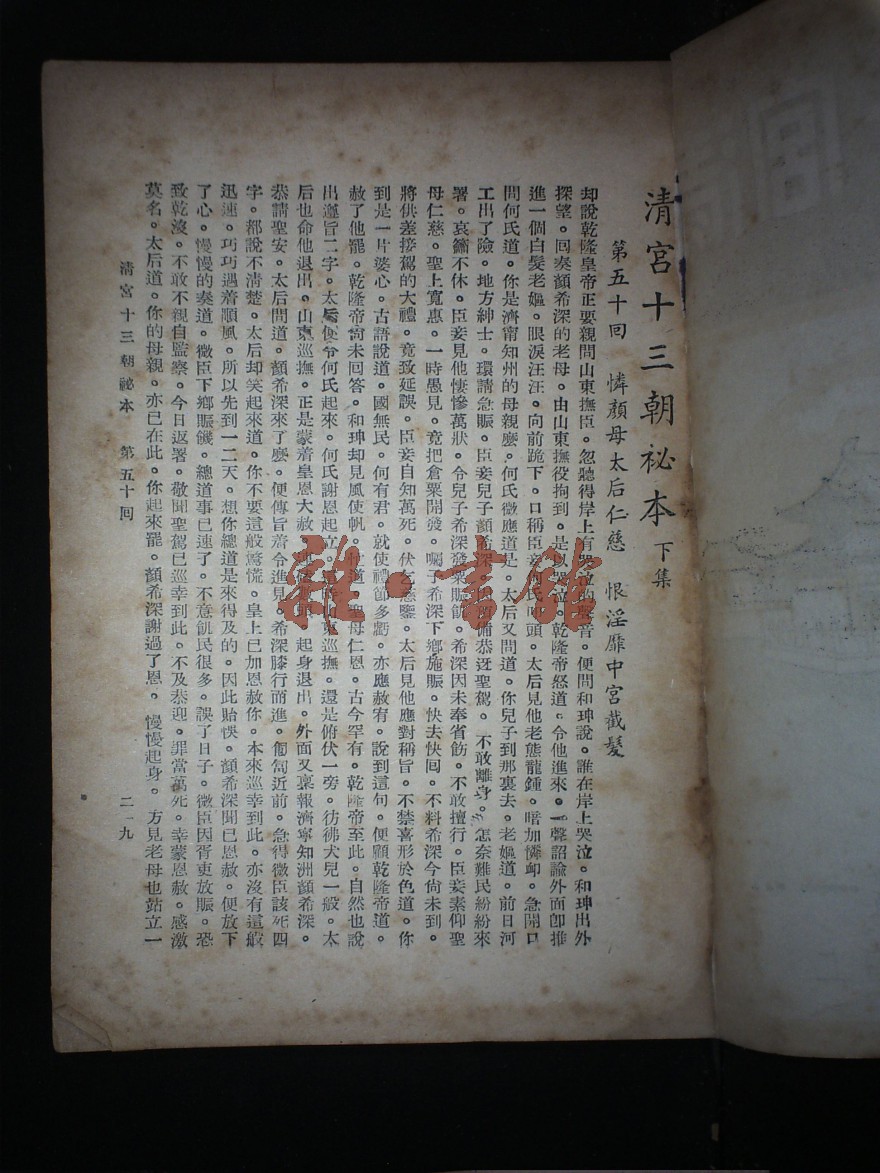 清宮十三朝祕本 下集
第五十回 憐顏母太后仁慈 恨淫靡中宮截髮
却說乾隆皇帝正要親問山東撫臣。忽聽得岸上有哭泣的聲音。便問和珅說。誰在岸上哭泣。和珅出外
探望。回奏顏希深的老母。由山東撫役拘到。是以哭泣。乾隆帝怒道。令他進來。一聲詔諭外面卽推
進一個白髮老嫗。眼淚汪汪。向前跪下。口稱臣妾何氏叩頭。太后見他老態龍鍾。暗加憐卹。急開口
問何氏道。你是濟甯知州的母親麽。何氏微應道是。太后又問道。你兒子到那裏去。老嫗道。前日河
工出了險。地方紳士。環請急賑。臣妾兒子顏希深。以所備恭迓聖駕。不敢離身。怎奈難民紛紛來
署。哀籲不休。臣妾見他悽慘萬狀。令兒子希深發粟賑飢。希深因未奉省飭。不敢擅行。臣妾素仰聖
母仁慈。聖上寬惠。一時愚見。竟把倉粟開發。囑子希深下鄉施賑。快去快囘。不料希深今尙未到。
將供差接駕的大禮。竟致延誤。臣妾自知萬死。伏乞慈鑒。太后見他應對稱旨。不禁喜形於色道。你
到是一片婆心。古語說道。國無民。何有君。就使禮節多虧。亦應赦宥。說到這句。便顧乾隆帝道。
赦了他罷。乾隆帝尙未回答。和珅却見風使帆。忙道。聖母仁恩。古今罕有。乾隆帝至此。自然也說
出遵旨二字。太后便令何氏起來。何氏謝恩起立。這時山東巡撫。還是俯伏一旁。彷彿犬兒一般。太
后也命他退出。山東巡撫。正是蒙着皇恩大赦。頭。起身退出。外面又稟報濟寧知洲顏希深。
恭請聖安。太后問道。顏希深來了麽。便傳旨着令進見。希深膝行而進。匍匐近前。急得微臣該死四
字。都說不淸楚。太后却笑起來道。你不要這般驚慌。皇上已加恩赦你。本來巡幸到此。亦沒有這般
迅速。巧巧遇着順風。所以先到一二天。想你總道是來得及的。因此貽悞。顏希深聞已恩赦。便放下
了心。慢慢的奏道。微臣下鄉賑饑。總道事已速了。不意飢民很多。誤了日子。微臣因胥吏放賑。恐
致乾沒。不敢不親自監察。今日返署。敬聞聖駕已巡幸到此。不及恭迎。罪當萬死。幸蒙恩赦。感激
莫名。太后道。你的母親。亦已在此。你起來罷。顏希深謝過了恩。慢慢起身。方見老母也站立一
清宮十三朝祕本 第五十回 二一九
雜·書館